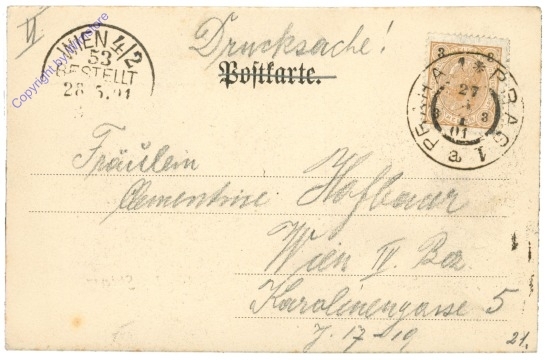 IV
WIEN 4/2
53
BESTELLT
28.5.01
Copyright by
Drucksache!
Postkarte.
PRAG 1 PRAHA 1
27
5
01
3 3
3 3
Fräulein
Clementine Hofbaur
Wien IV. Bez.
Karolinengasse 5
T. 17-19
21.